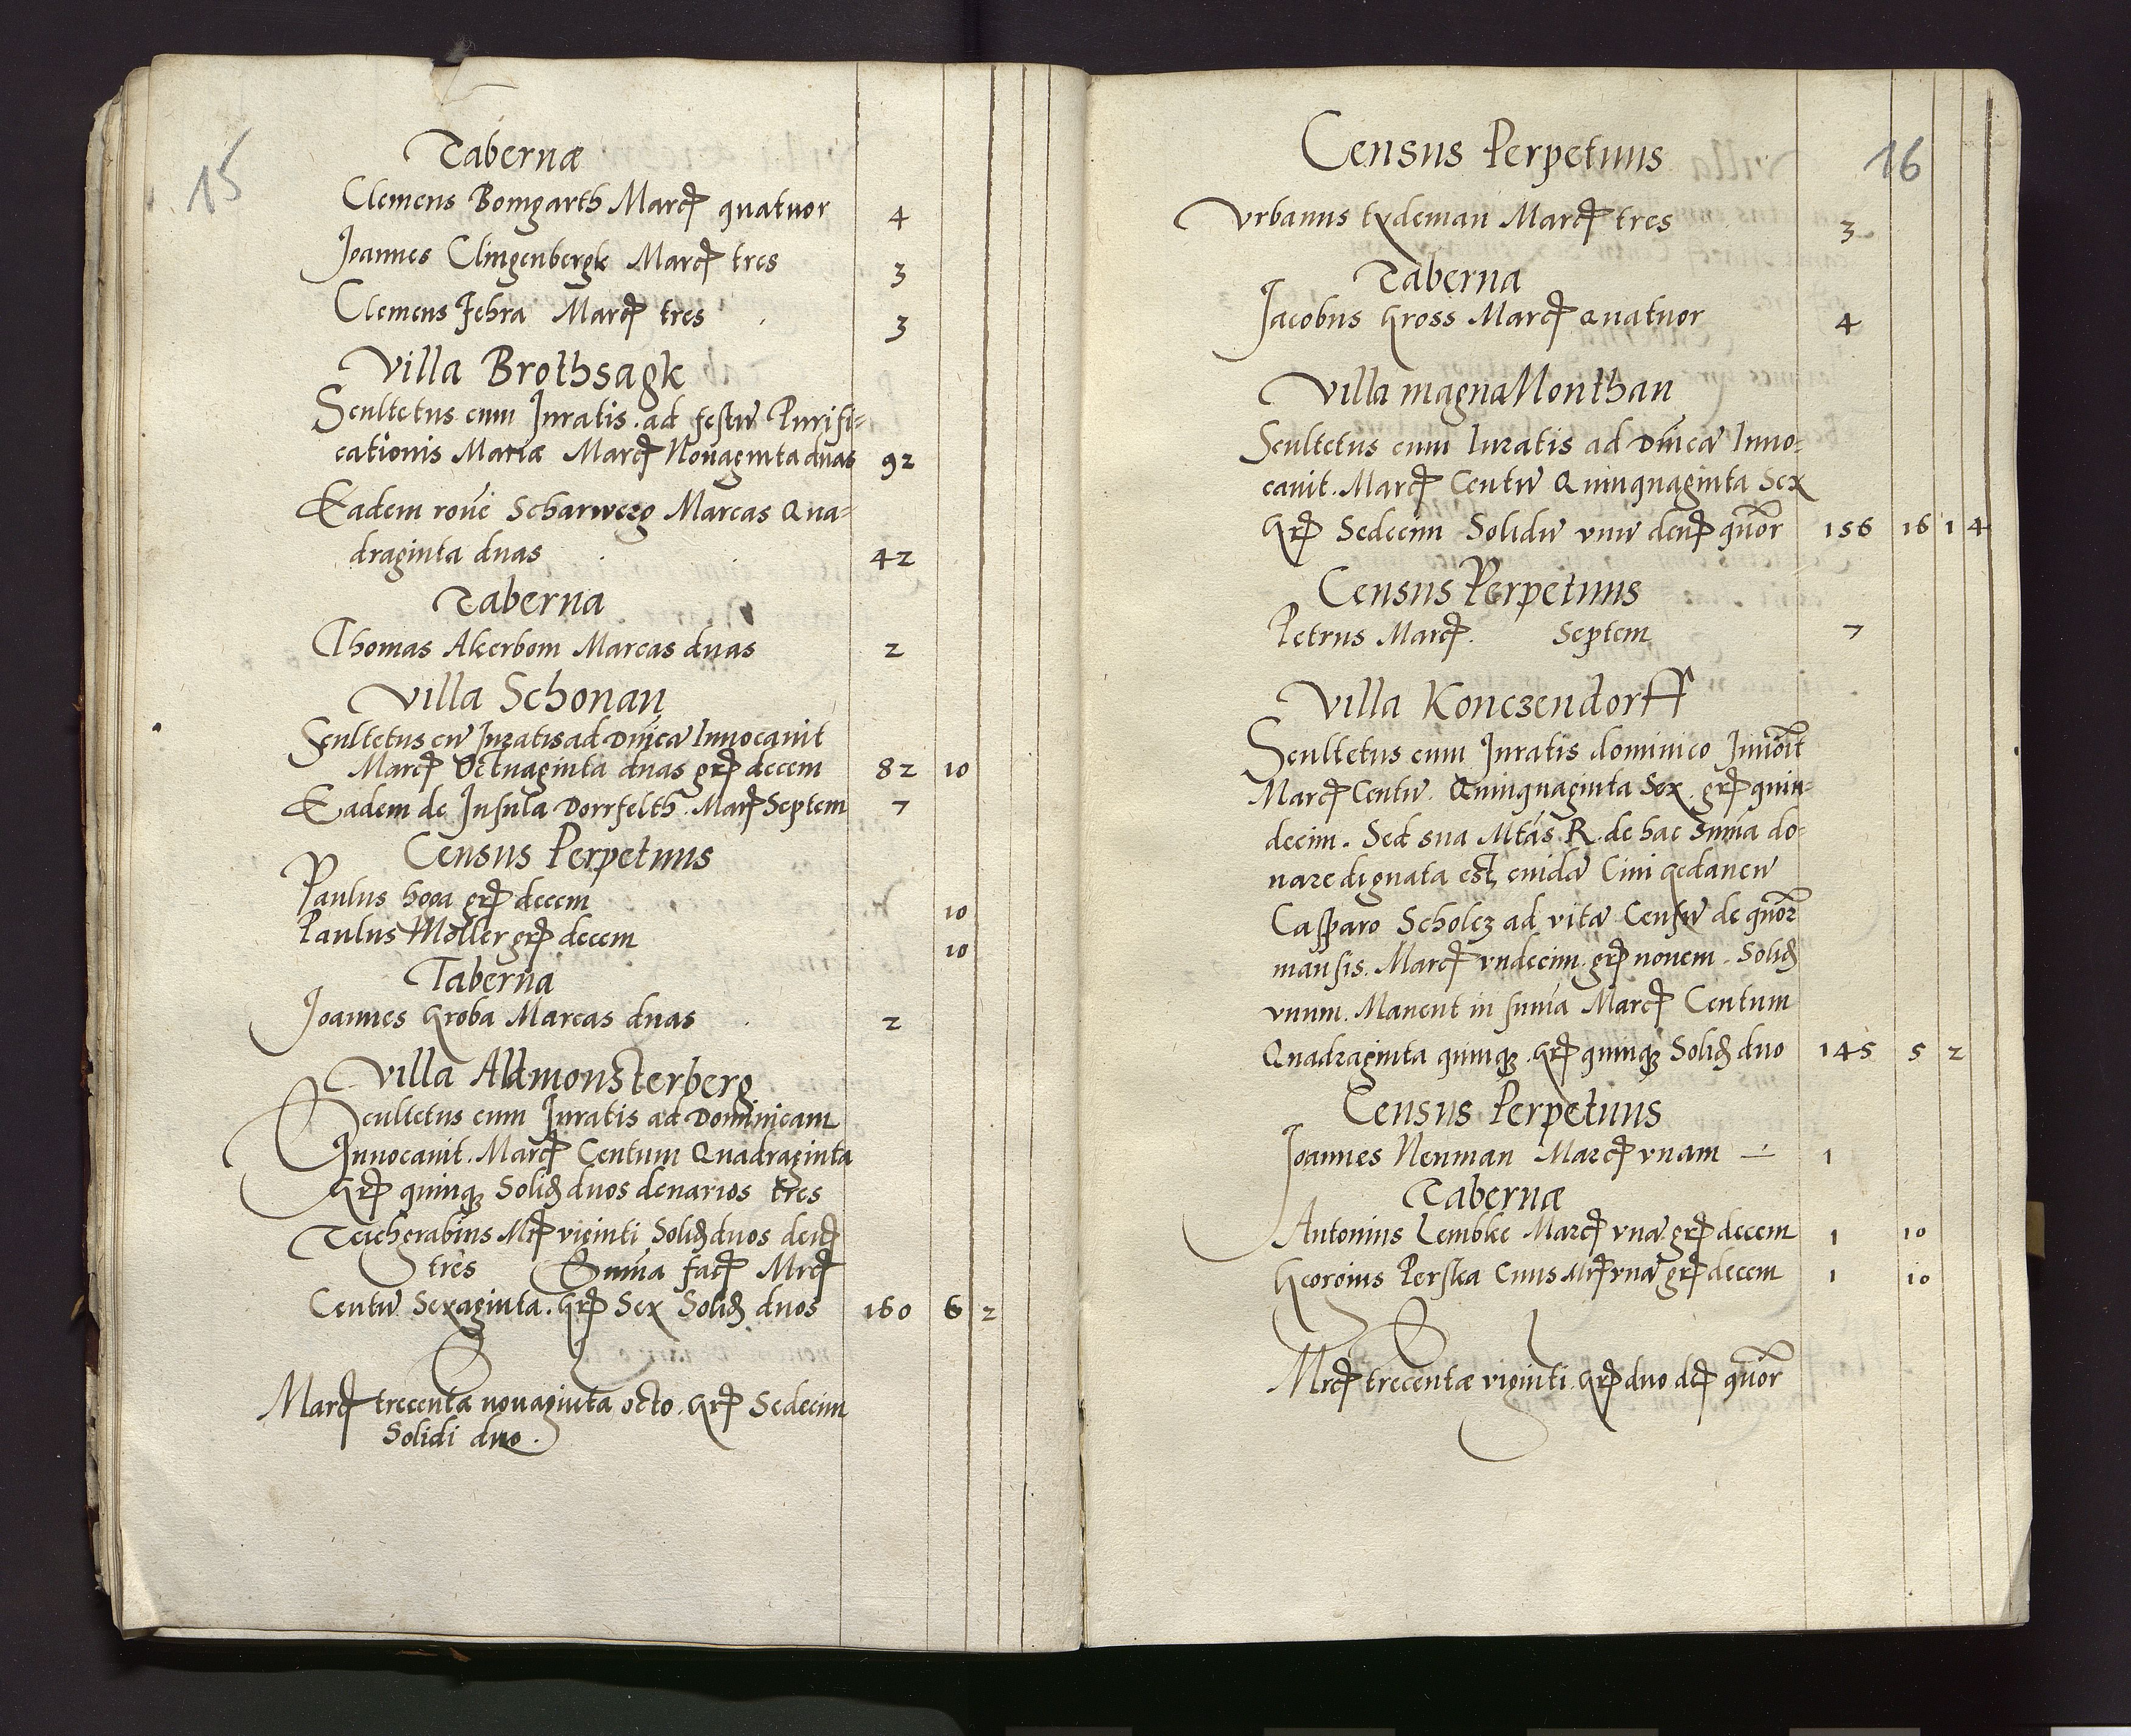 15
Tabernæ
Clemens Bomgarth Marcȝ quatuor 4
Joannes Clingenbergk Marcȝ tres 3
Clemens Fehra Marcȝ tres 3
Villa Brothsagk
Scultetus cum Juratis ad festū Purifi-
cationis Mariæ Marcȝ Nonaginta duas 92
Eadem Scharwerg Marcas Qua-
draginta duas 42
Taberna
Thomas Akerbom Marcas duas 2
Villa Schonau
Scultetus cū Juratis ad Dn̄icā Inuocauit
Marcȝ Octuaginta duas grȝ decem 82 10
Eadem de Insula Dorrfelth Marȝ Septem 7
Census Perpetuus
Paulus grȝ decem 10
Paulus Möller grȝ decem 10
Taberna
Joannes Groba Marcas duas 2
Villa Altmonsterberg
Scultetus cum Juratis ad Dominicam
Inuocauit. Marcȝ Centum Quadraginta
Grȝ quinqȝ Solidȝ duos denarios tres
Teichgrabius Mrȝ viginti Solidȝ duos denȝ
tres Sum̄a facȝ Mrcȝ
Centū Sexaginta. Grȝ Sex Solidȝ duos 160 6 2
Marcȝ trecenta nonaginta octo. Grȝ Sedecim
Solidi duo.
16
Census Perpetuus
Vrbanus tydeman Marcȝ tres 3
Taberna
Jacobus Gross Marcȝ Quatuor 4
Villa magna Monthau
Scultetus cum Iuratis ad Dn̄icā Inuo-
cauit. Marcȝ Centū Quinquaginta Sex
Grȝ Sedecim Solidū vnū denȝ quōr 156 16 1 4
Census Perpetuus
Petrus Marcȝ. Septem 7
Villa Konczendorff
Scultetus cum Juratis dominico Inuōit
Marcȝ Centū. Quinquaginta Sex. grȝ quin-
decim. Sed sua Mtās R. de hac Sum̄a do-
nare dignata est, cuidā Ciui Gedanen̄
Casparo Scholcz ad vitā Censū de quōr
mansis. Marcȝ vndecim. grȝ nouem. Solidȝ
vnum. Manent in sum̄a Marcȝ Centum
Quadraginta quinqȝ. Grȝ quinqȝ Solidȝ duo 145 5 2
Census Perpetuus
Joannes Neuman Marcȝ vnam 1
Tabernæ
Antonius Lembke Marcȝ vnā grȝ decem 1 10
Georgius Perska Ciuis Mrȝ vnā grȝ decem 1 10
Mrcȝ trecentæ viginti. Grȝ duo dȝ quōr